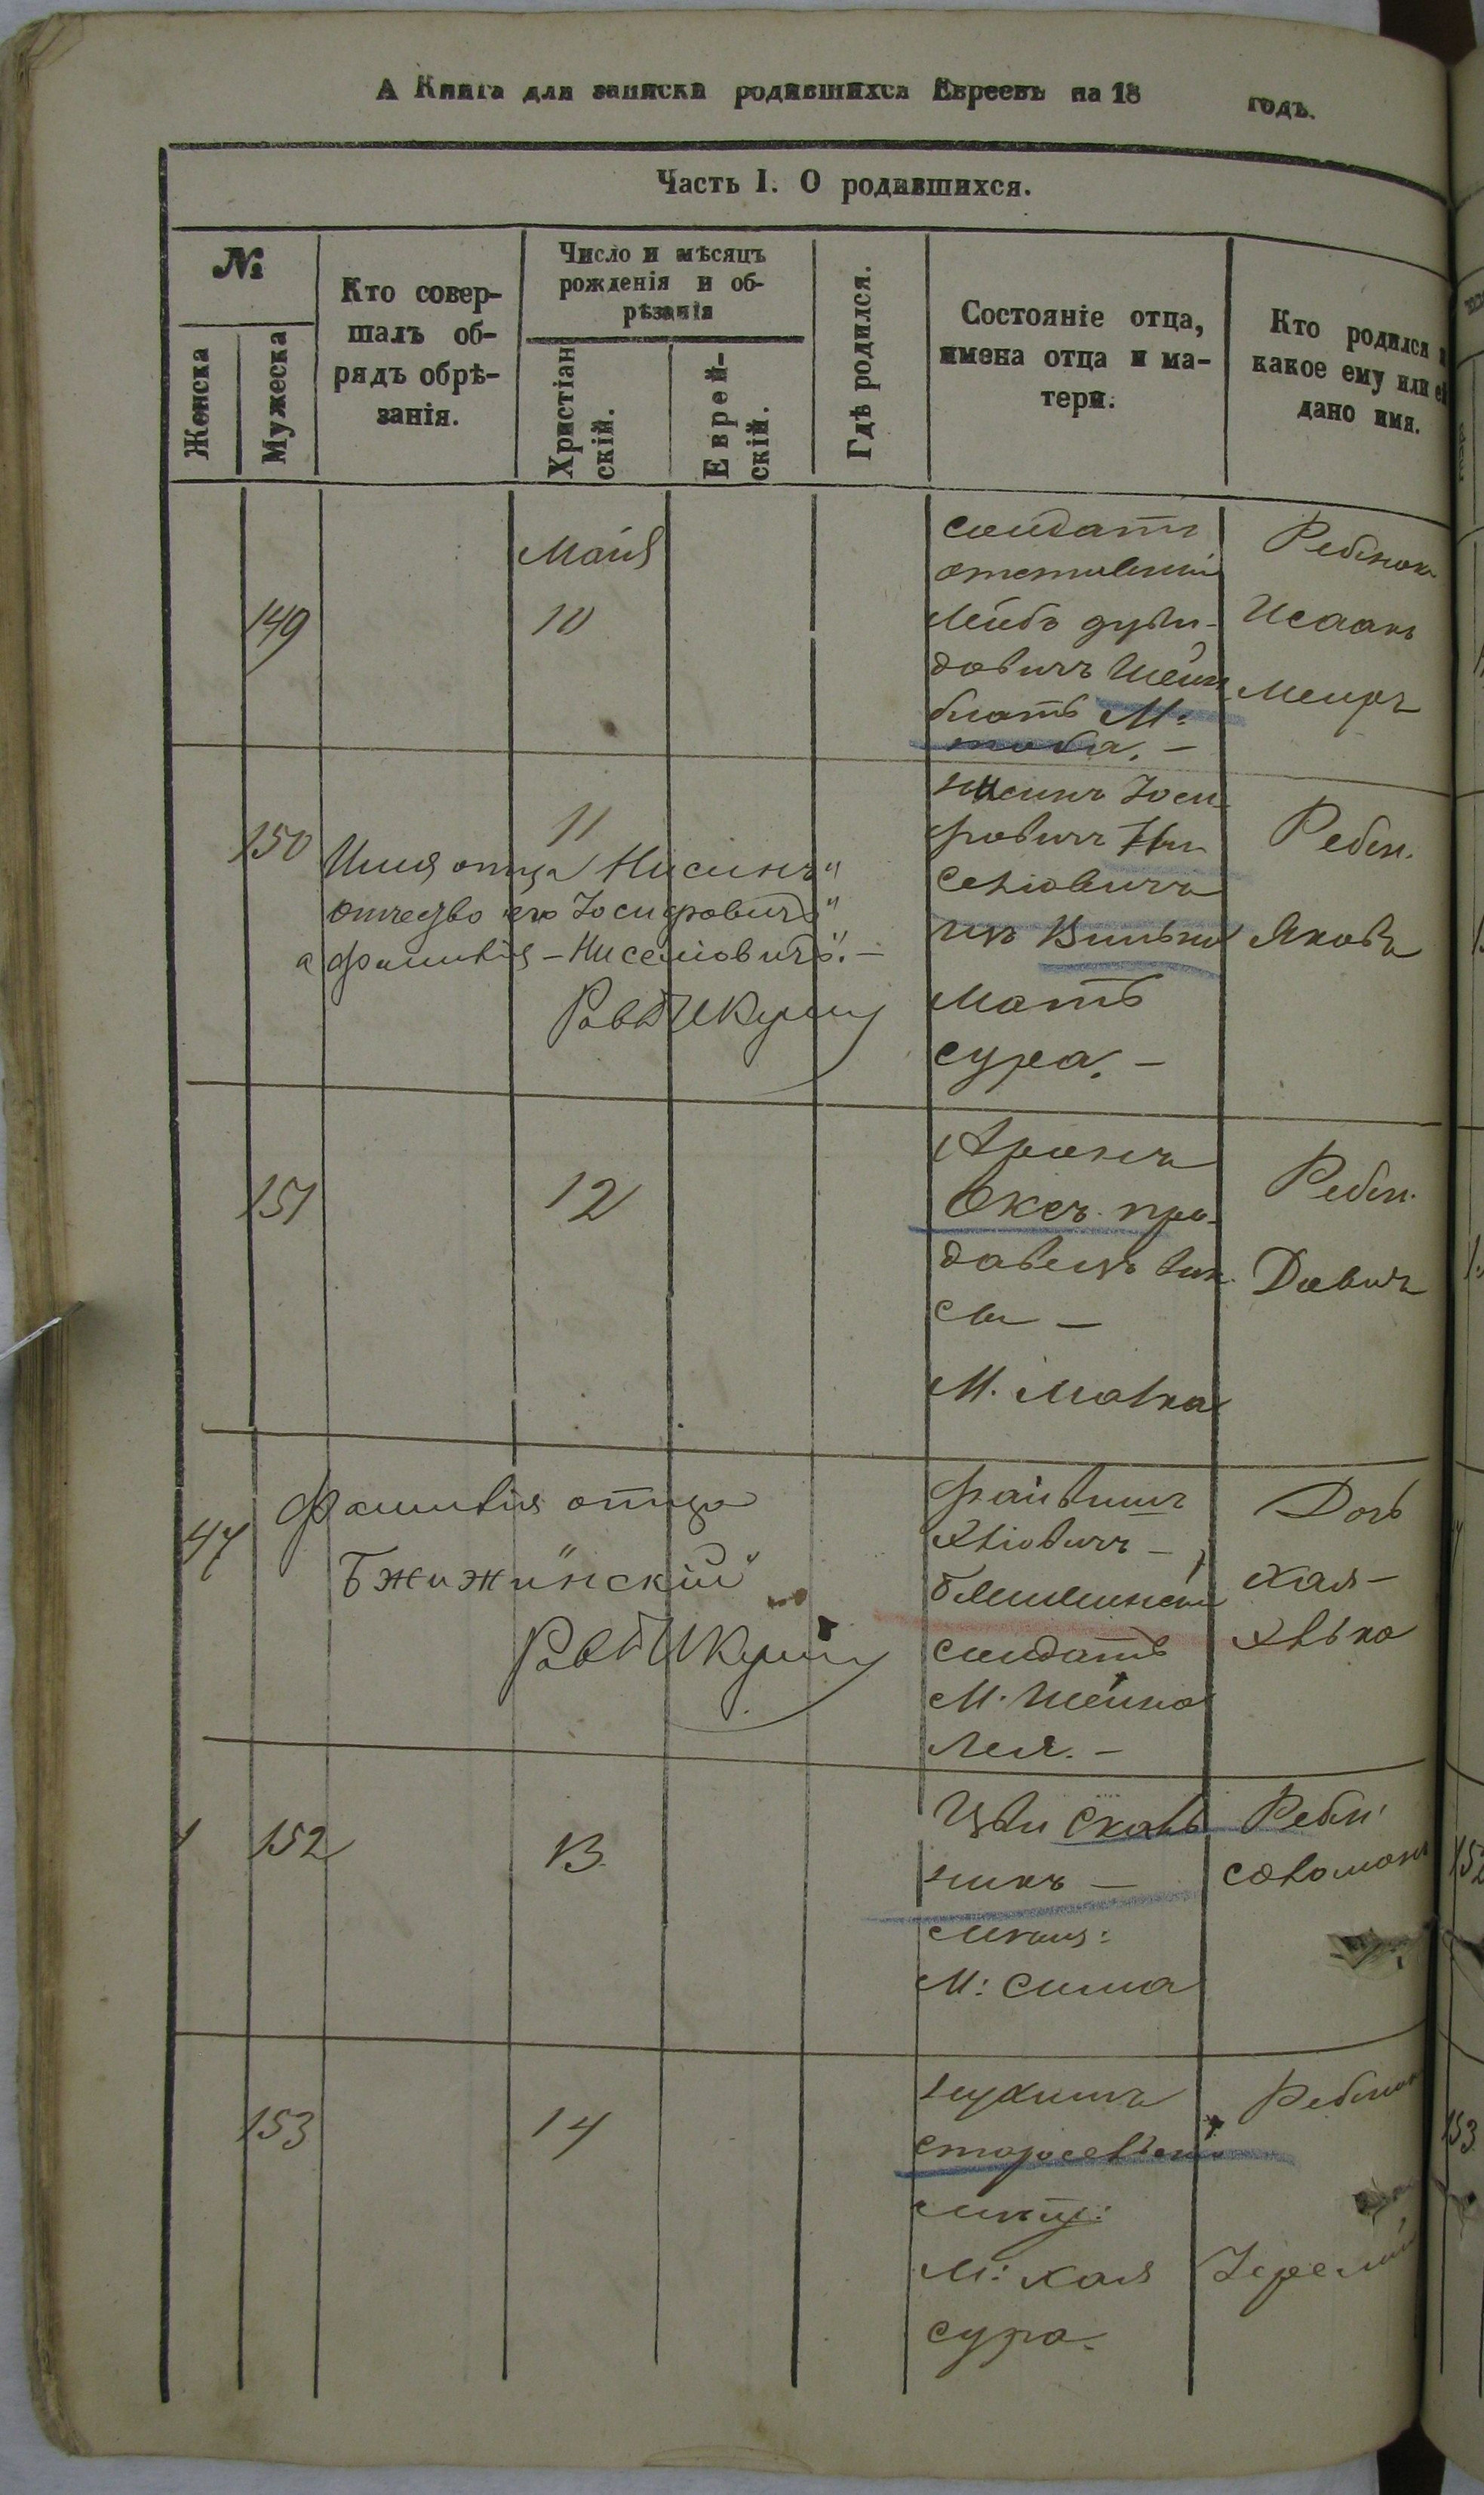 А Книга для записки родившихся Евреевъ на 18 годъ.
Часть I. О родившихся.
№
Женска
Мужеска
Кто совер-
шалъ об-
рядъ обрѣ-
занія.
Число и мѣсяцъ
рожденія и об-
рѣзанія
Христіан
скій.
Еврей-
скій.
Гдѣ родился.
Состояніе отца,
имена отца и ма-
тери.
Кто родился и
какое ему или ей
дано имя.
149
Маія
10
солдатъ
отставной
Лейбъ
довичъ Шейн
блатъ М:
Ребенокъ
Исаакъ
Меиръ
150
11
Имя отца „Нисинъ"
отчество его Іосифовичъ"
а фамилія – Ниселіовичъ". –
Нисинъ Іоси
фовичъ Ни
селіовичъ
изъ Вильно
мать
сура. –
Ребен.
Яковъ
151
12
Аронъ
Оксъ про-
давецъ
М. Малка
Ребен.
Давидъ
47
фамилія отца
Бжижинскій"
файвишъ
солдатъ
М. Шейна
Лея. –
Дочь
Хая –
152
13.
Цви Скаль
никъ –
М: Сима
Ребен:
соломонъ
153
14
старосельскій
М: Хая
сура.
Ребенокъ